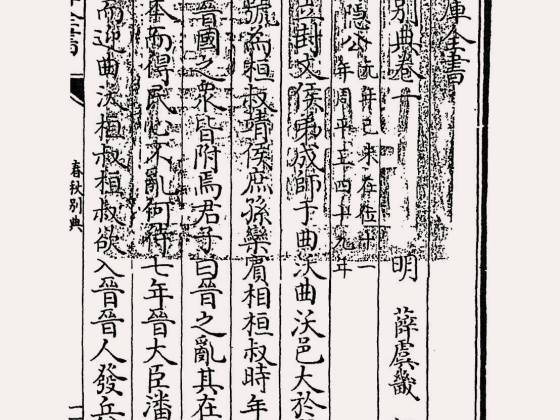 庫全書
別典卷一
明 薛虞畿
隱公 元年己未在位十一年周平王四十九年
立封文侯弟成師于曲沃曲沃邑大於
號為桓叔靖侯庶孫欒賓相桓叔時年
晉國之衆皆附焉君子曰晉之亂其在
本而得民心不亂何待七年晉大臣潘
而迎曲沃桓叔桓叔欲入晉晉人發兵
全書
春秋別典